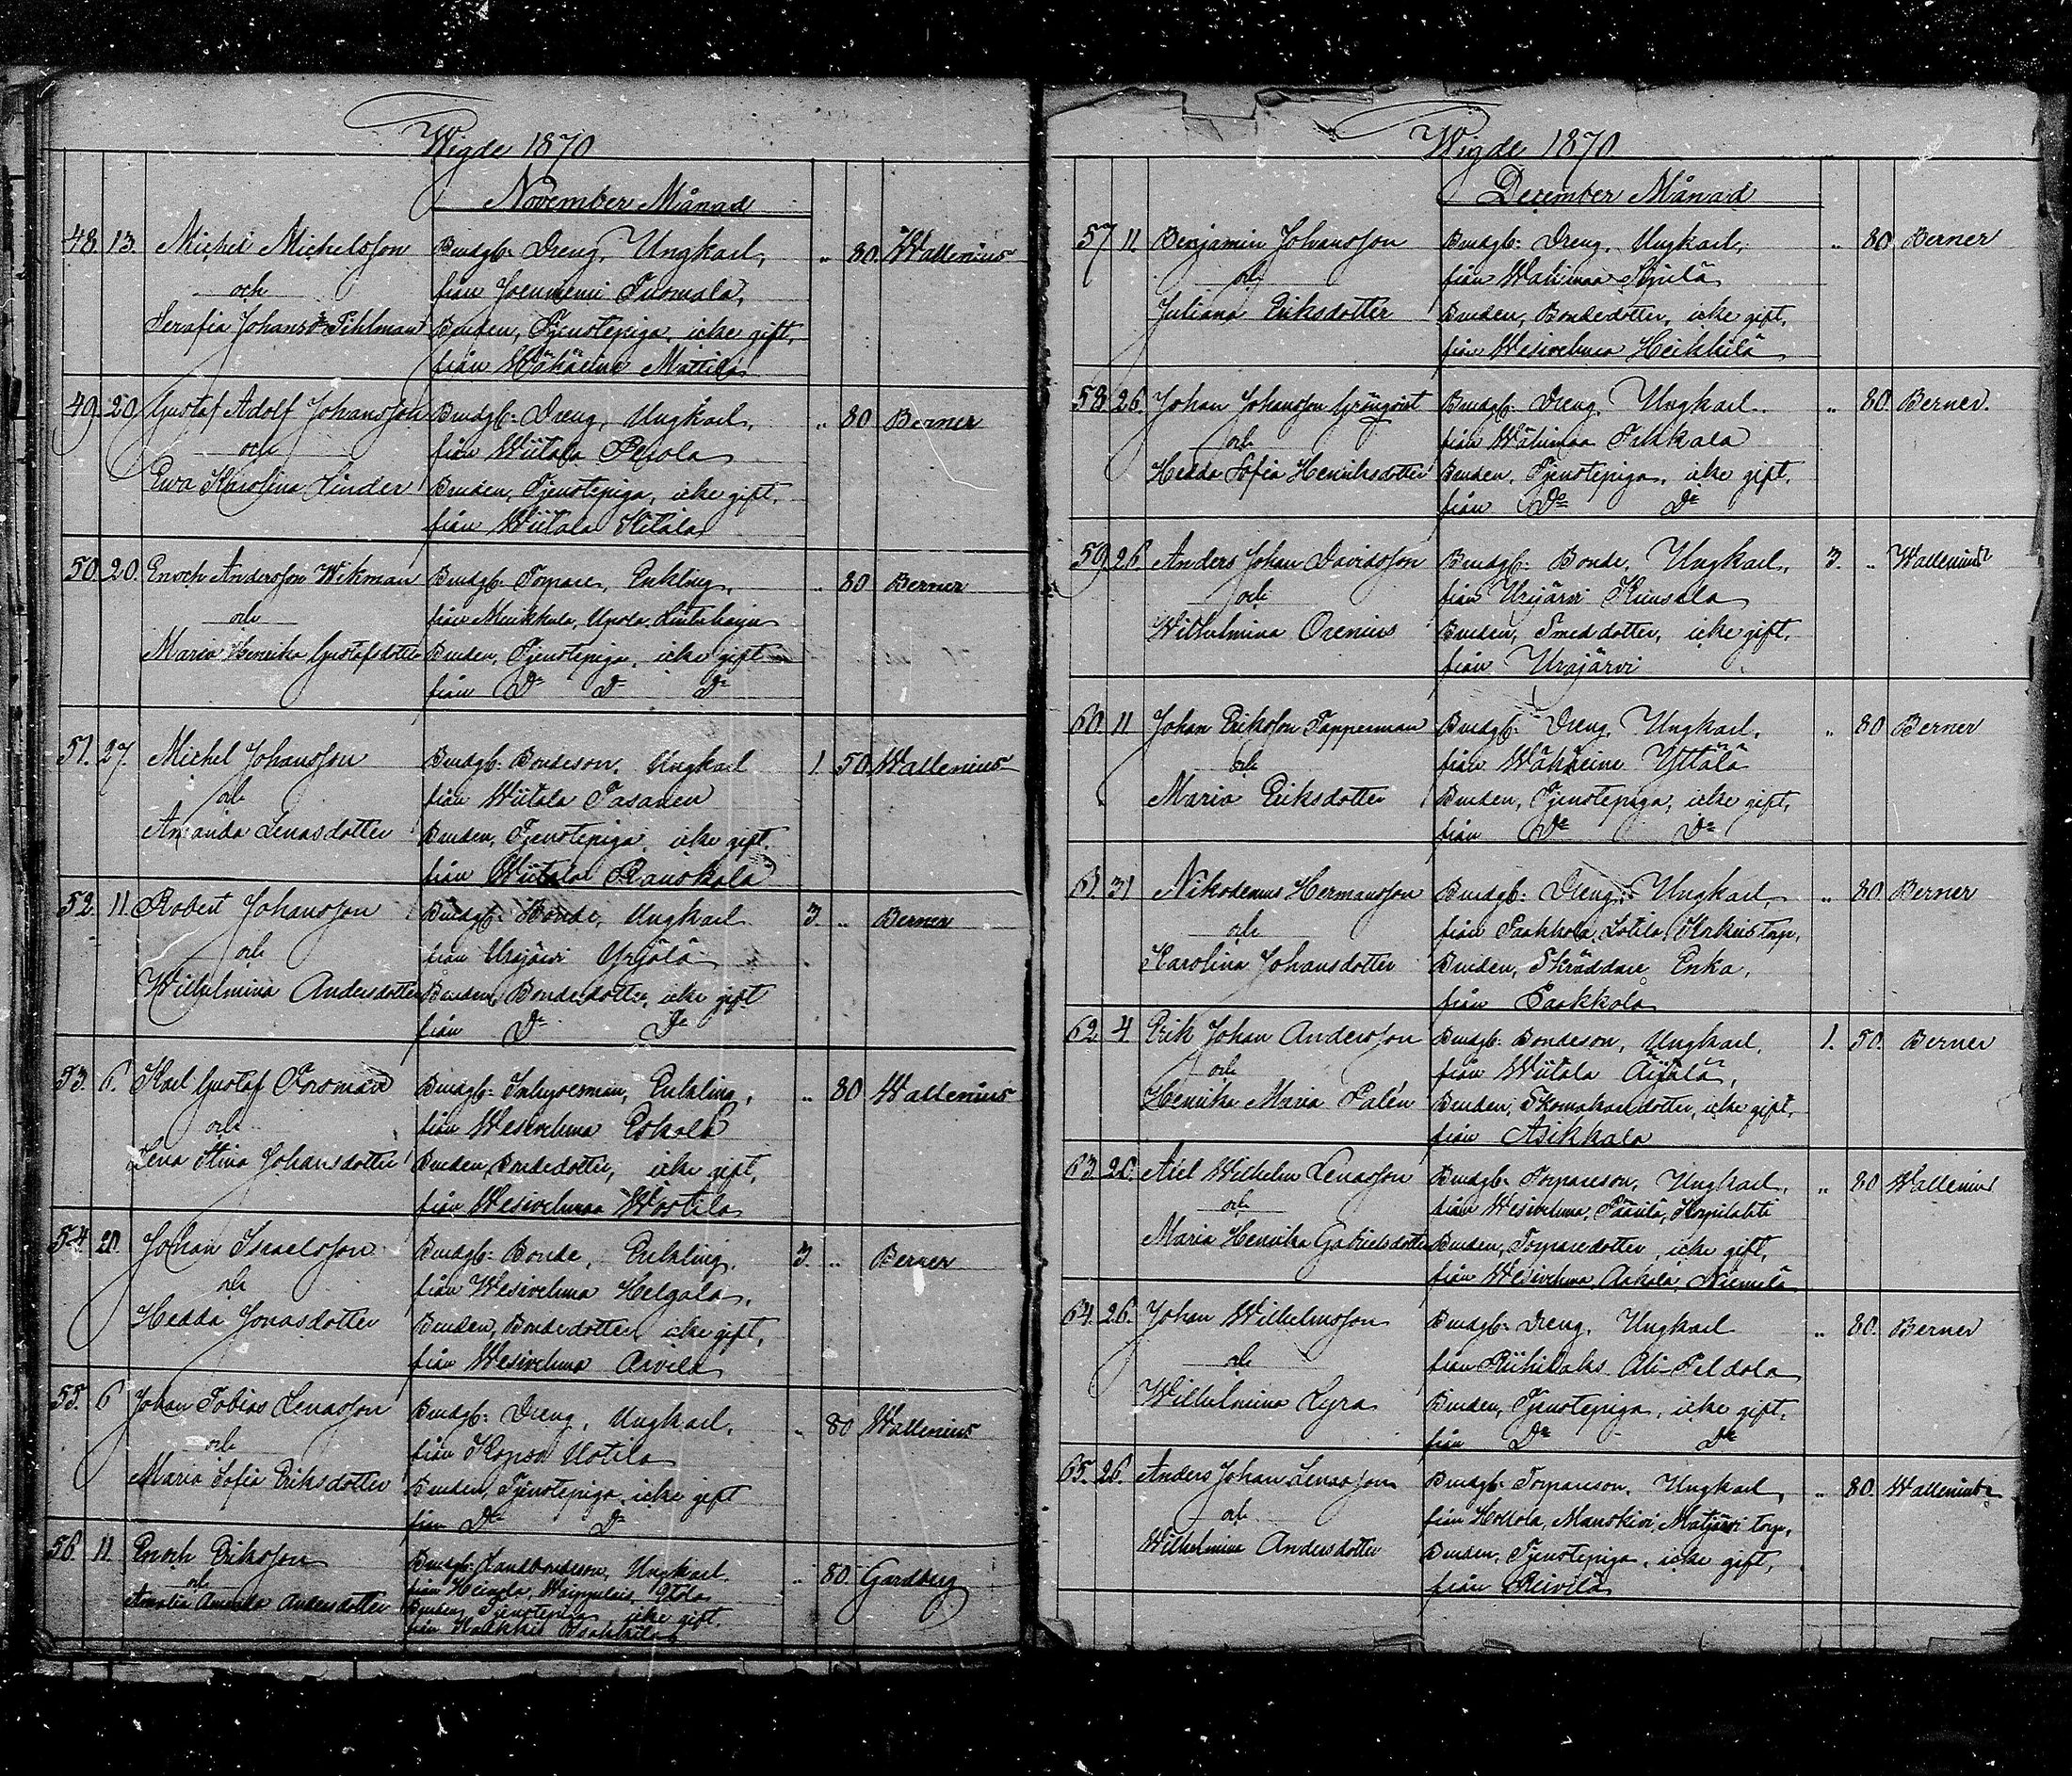 Wigde 1870
November Månad
48 13. Michel Michelsson Brudg: Dreng, Ungkarl, " 80. Wallenius
och från Joenniemi Tuomala,
Serafia Johansdr Tihlman Bruden, Tjenstepiga, icke gift,
från Wähäeini Mattila
49. 20. Gustaf Adolf Johansson Brudg: Dreng, Ungkarl, " 80 Berner
och från Wiitala Perola
Ewa Karolina Linder Bruden, Tjenstepiga, icke gift,
från Wiitala
50. 20. Enoch Andersson Wikman Brudg: Torpare, Enkling, " 80 Berner
och från
Maria Henrika Gustafsdotter Bruden, Tjenstepiga, icke gift
från Do Do Do
51. 27. Michel Johansson Brudg: Bondeson, Ungkarl 1. 50. Wallenius
och från Wiitala Pasanen
Amanda Lenasdotter Bruden, Tjenstepiga, icke gift,
från Wiitala Rauskala
52. 11. Robert Johansson Brudg: Bonde, Ungkarl 3. " Berner
och från Urajärvi Yrjölä
Wilhelmina Andersdotter Bruden, Bondedotter, icke gift
från Do Do
53. 6. Karl Gustaf Forsman Brudg: Inhysesman, Enkling, " 80 Wallenius
och från Wesivehmaa Eskola
Lena Stina Johansdotter Bruden, Bondedotter, icke gift,
från Wesivehmaa Wostila
54. 20. Johan Israelsson Brudg: Bonde, Enkling, 3. " Berner
och från Wesivehmaa Helgala,
Hedda Jonasdotter Bruden, Bondedotter, icke gift,
från Wesivehmaa Arvila
55. 6 Johan Tobias Lenasson Brudg: Dreng, Ungkarl, " 80 Wallenius
och från Kopsu Uotila
Maria Sofia Eriksdotter Bruden, Tjenstepiga, icke gift
från Do Do
56. 11. Enoch Eriksson Brudg: Landbondeson, Ungkarl. " 80. Gardberg
och från Heinola,
Amalia Amanda Andersdotter Bruden, Tjenstepiga, icke gift.
från
Wigde 1870.
December Månad
57 11. Benjamin Johansson Brudg: Dreng, Ungkarl, " 80. Berner
och från Wähimaa
Juliana Eriksdotter Bruden, Bondedotter, icke gift,
från Wesivehmaa Heikkilä
58. 26. Johan Johansson Grünqvist Brudg: Dreng, Ungkarl. " 80. Berner.
och från Wähimaa Pekkala
Hedda Sofia Henriksdotter Bruden, Tjenstepiga, icke gift.
från Do Do
59. 26. Anders Johan Davidsson Brudg: Bonde, Ungkarl, 3. " Wallenius
och från Urajärvi
Wilhelmina Orenius Bruden, Smed dotter, icke gift,
från Urajärvi
60. 11 Johan Eriksson Tapperman Brudg: Dreng, Ungkarl, " 80 Berner
och från Wähäeini Yttälä
Maria Eriksdotter Bruden, Tjenstepiga, icke gift,
från Do Do
61. 31 Nikodemus Hermansson Brudg: Dreng, Ungkarl, " 80. Berner
och från Paakkola, torp,
Karolina Johansdotter Bruden, Skräddare Enka,
från Paakkola
62 4 Erik Johan Andersson Brudg: Bondeson, Ungkarl, 1. 50. Berner
och från Wiitala Äijälä,
Henrika Maria Palén Bruden, Skomakaredotter, icke gift,
från Asikkala
63. 26. Axel Wilhelm Lenasson Brudg: Torpareson, Ungkarl, " 80 Wallenius
och från Wesivehmaa,
Maria Henrika Gabrielsdotter Bruden, Torparedotter, icke gift,
från Wesivehmaa Ankola, Niemelä
64. 26. Johan Wilhelmsson Brudg: Dreng, Ungkarl " 80. Berner
och från Riihilaks Ali-Peldola
Wilhelmina Lyra Bruden, Tjenstepiga, icke gift,
från Do Do
65. 26. Anders Johan Lenasson Brudg: Torpareson, Ungkarl, " 80. Wallenius
och från Hollola, Manskivi, torp,
Wilhelmina Andersdotter Bruden, Tjenstepiga, icke gift,
från